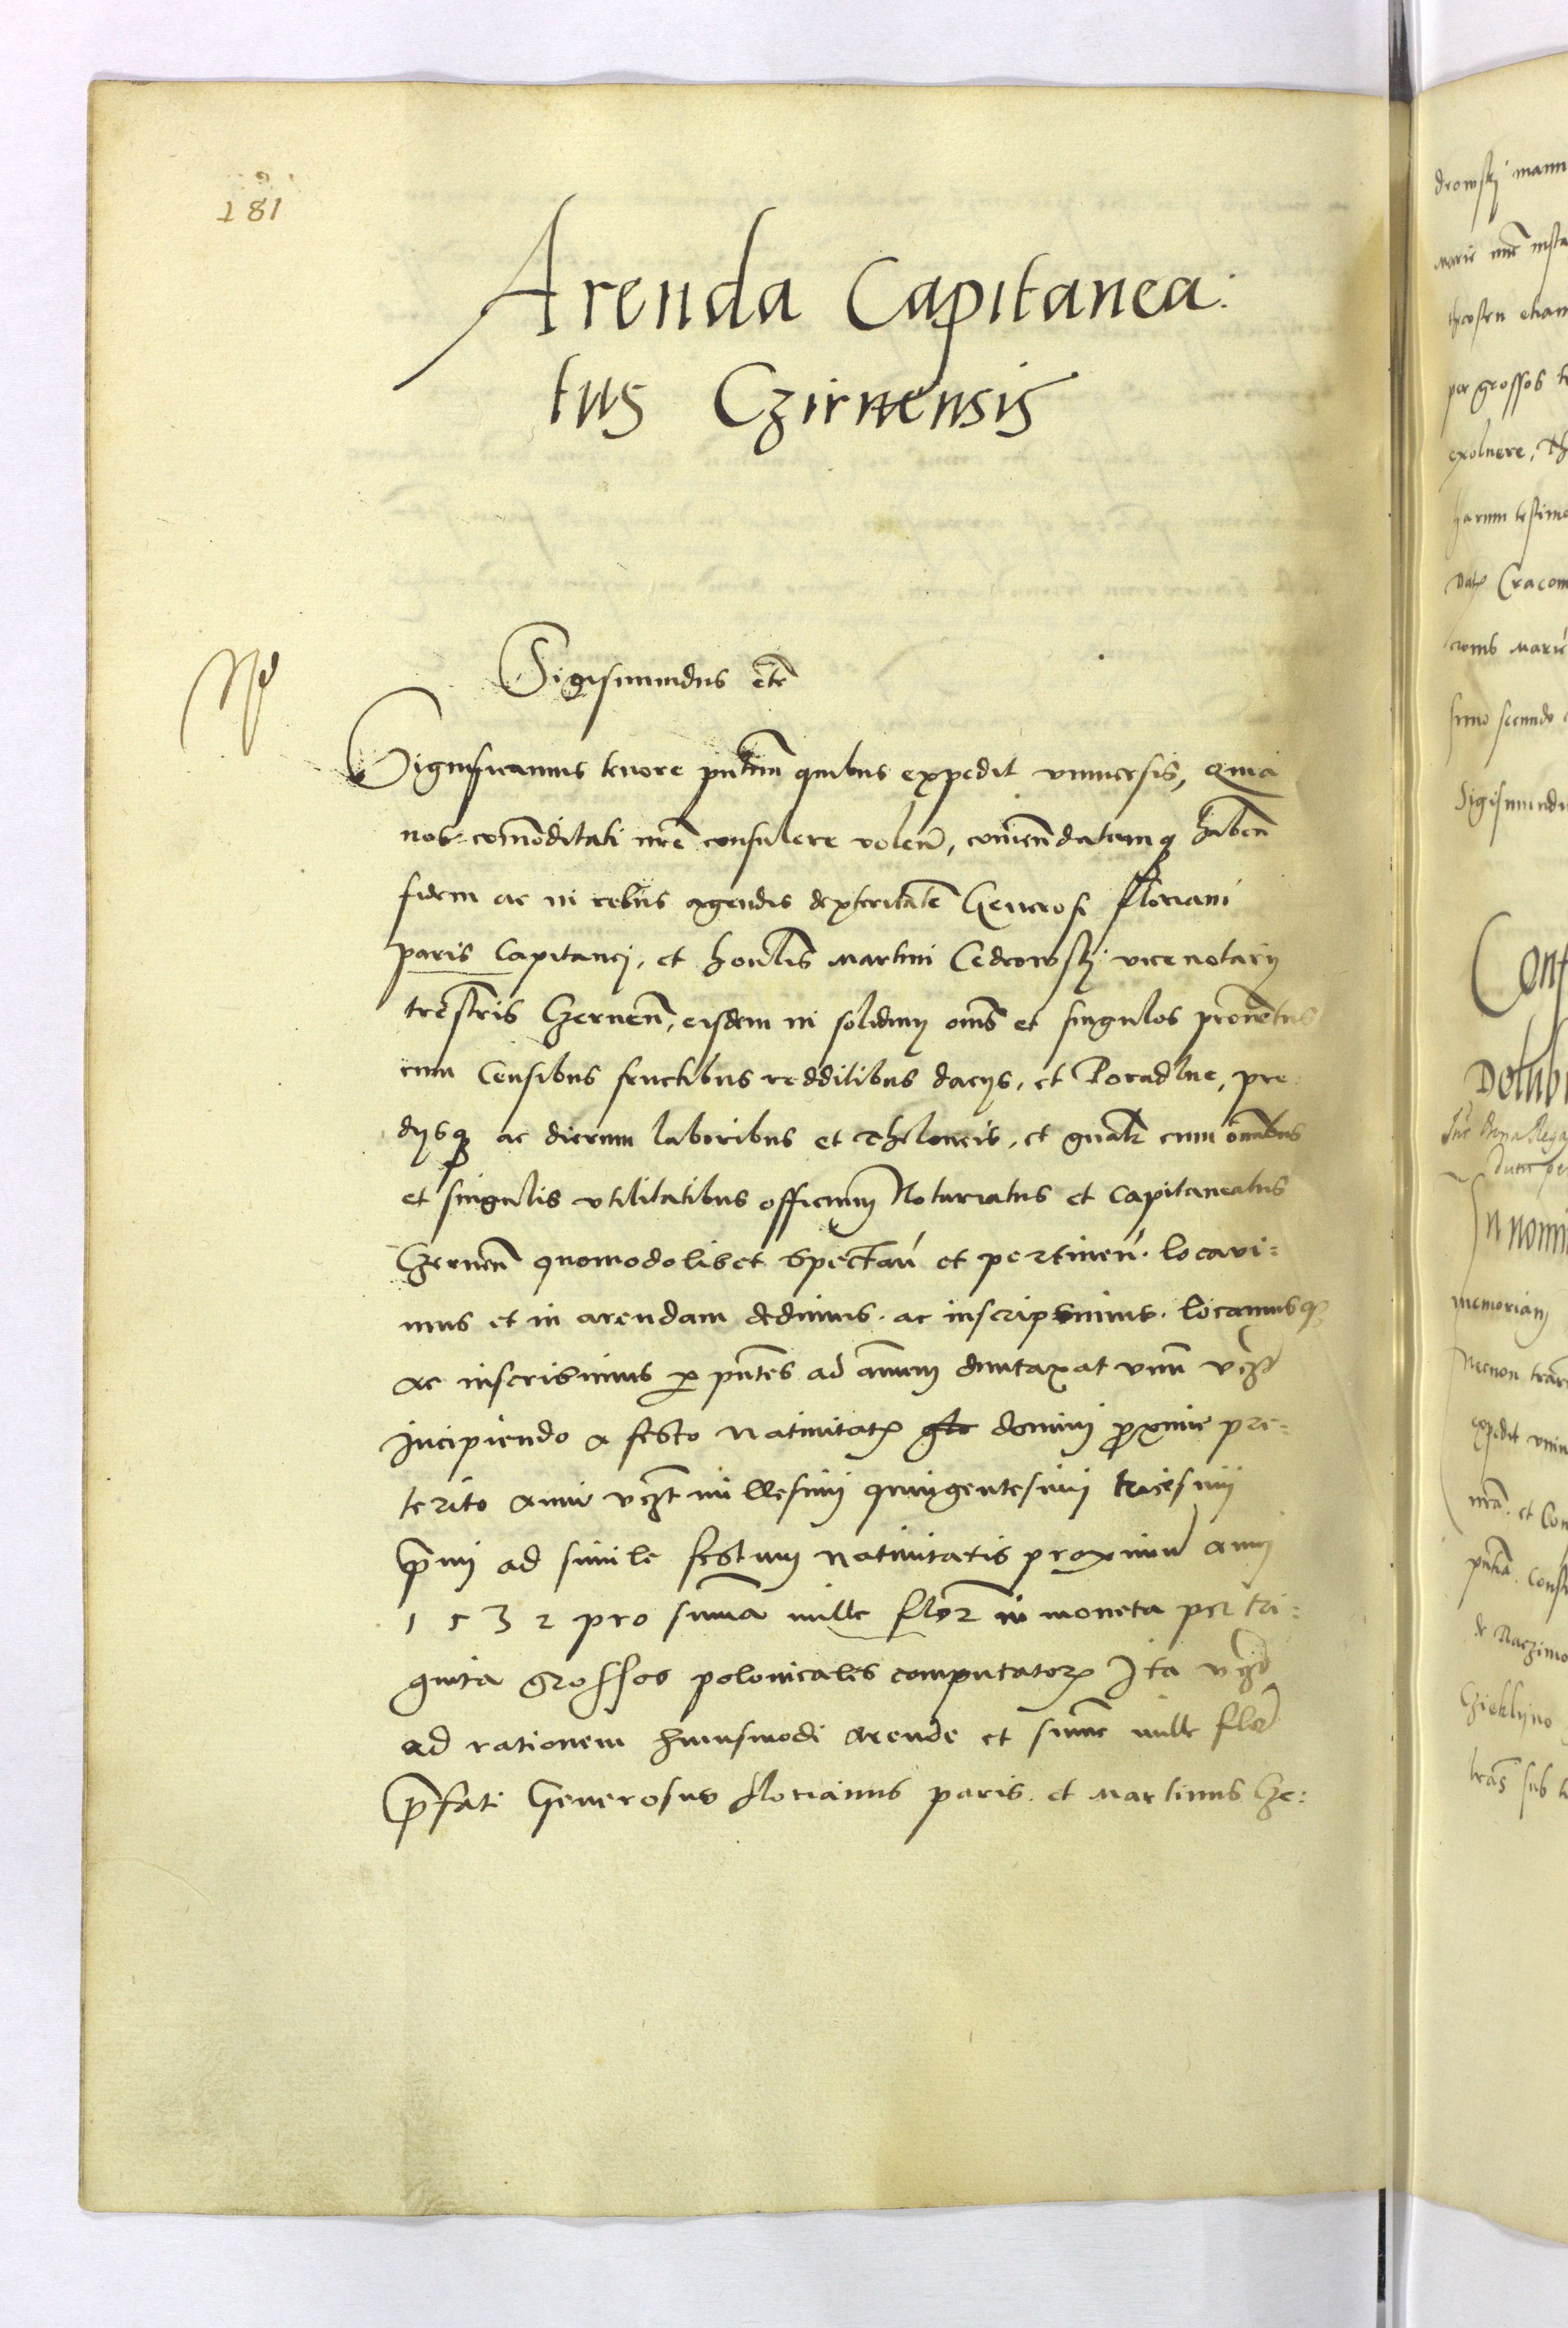 181
Arenda Capitanea:
tus Czirnensis
Sigismundus etc̃
Significamus tenore pñtium quibus expedit vniuersis, quia
nos comoditati nr̃e consulere volen̄, comendatamq̃ haben̄
fidem ac in rebus agendis dexteritatẽ Generosi floriani
paris Capitanej, et honlis Martini Cedrowskj vicenotarij
trẽstris Czernen̄, eisdem in solidum om̃s et singulos prouẽtus
cum Censibus fructibus redditibus dacijs, et Poradlne, pre
dijsq̃ ac dierum laboribus et theloneis, et gñalr cum oĩbus
et singulis vtilitatibus officium Notariatus et Capitaneatus
Czernen̄ quomodolibet spectan̄ et pertinen̄. locaui=
mus et in arendam dedimus. ac inscripsimus. locamusq̃
ac inscribimus p pñtes ad annum duntaxat vnũ vcz̃
Incipiendo a festo natiuitatis glo domini proxime pre=
terito anni vczt millesimi quingentesimi tricesimi
p̃mi ad simile festum natiuitatis proximũ anni
1532 pro sum̃a mille flor in moneta per tri=
ginta grossos polonicales computator Ita vcz̃
ad rationem huiusmodi arende et sum̃e mille flor̃
p̃fati Generosus florianus paris. et Martinus Cze:
drowskj
per grossos
exoluere,
harum
Sigismundu
Conf
In nomi
memoriam
necnon